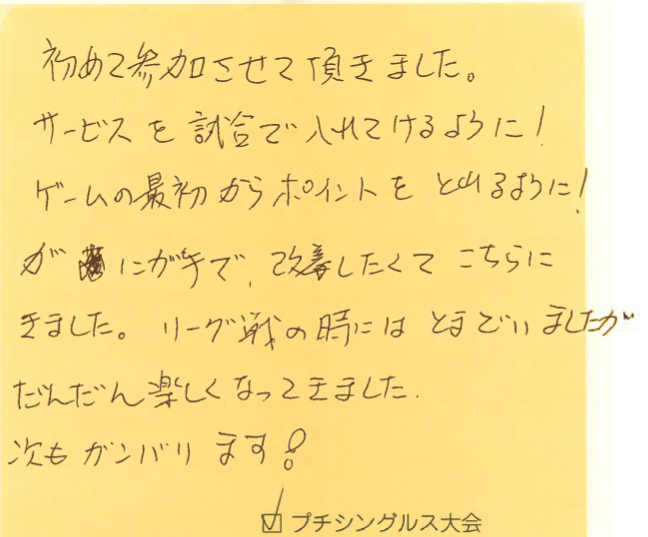 初めて参加させて頂きました。
サービスを試合で入れてけるように!
ゲームの最初からポイントをとれるように!
が にが手で、改善したくてこちらに
きました。リーグ戦の時にはとまどいましたが
だんだん楽しくなってきました.
次もガンバリます!
☑ プチシングルス大会